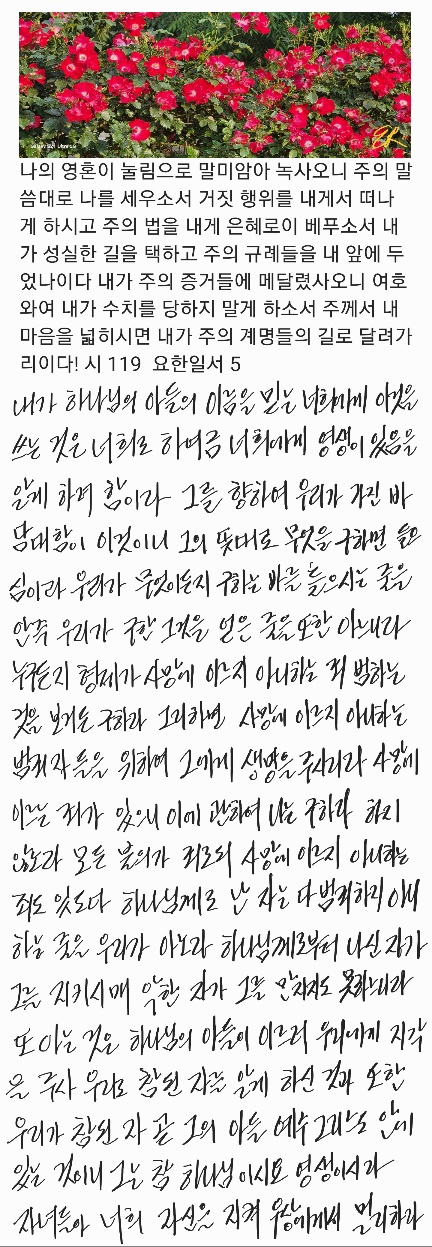 나의 영혼이 눌림으로 말미암아 녹사오니 주의 말
씀대로 나를 세우소서 거짓 행위를 내게서 떠나
게 하시고 주의 법을 내게 은혜로이 베푸소서 내
가 성실한 길을 택하고 주의 규례들을 내 앞에 두
었나이다 내가 주의 증거들에 메달렸사오니 여호
와여 내가 수치를 당하지 말게 하소서 주께서 내
마음을 넓히시면 내가 주의 계명들의 길로 달려가
리이다! 시 119 요한일서 5
내가 하나님의 아들의 이름을 믿는 너희에게 이것을
쓰는 것은 너희로 하여금 너희에게 영생이 있음을
알게 하려 함이라 그를 향하여 우리가 가진 바
담대함이 이것이니 그의 뜻대로 무엇을 구하면 들으
심이라 우리가 무엇이든지 구하는 바를 들으시는 줄을
안즉 우리가 구한 그것을 얻은 줄을 또한 아느니라
누구든지 형제가 사망에 이르지 아니하는 죄 범하는
것을 보거든 구하라 그리하면 사망에 이르지 아니하는
범죄자들을 위하여 그에게 생명을 주시리라 사망에
이르는 죄가 있으니 이에 관하여 나는 구하라 하지
않노라 모든 불의가 죄로되 사망에 이르지 아니하는
죄도 있도다 하나님께로 난 자는 다 범죄하지 아니
하는 줄을 우리가 아노라 하나님께로부터 나신 자가
그를 지키시매 악한 자가 그를 만지지도 못하느니라
또 아는 것은 하나님의 아들이 이르러 우리에게 지각
을 주사 우리로 참된 자를 알게 하신 것과 또한
우리가 참된 자 곧 그의 아들 예수 그리스도 안에
있는 것이니 그는 참 하나님이시요 영생이시라
자녀들아 너희 자신을 지켜 우상에게서 멀리하라